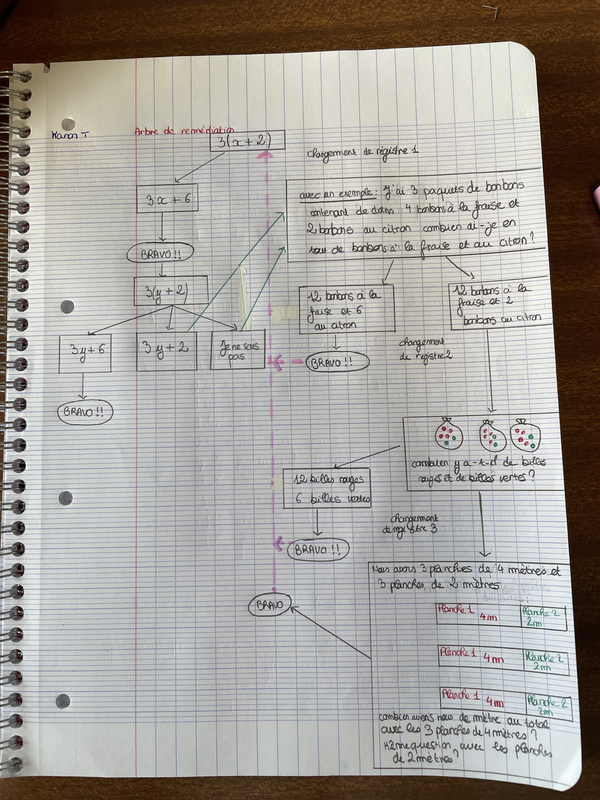 Manon T
Arbre de remédiation
3(x+2)
changement de régistre 1
3x+6
avec un exemple : j'ai 3 paquets de bonbons
contenant de dans 4 bonbons à la fraise et
2 bonbons au citron combien ai-je en
tout de bonbons à la fraise et au citron ?
BRAVO !!
3(y+2)
12 bonbons à la
fraise et 6
au citron
12 bonbons à la
fraise et 2
bonbons au citron
3y+6
3y+2
Je ne sais
pas
changement
de registre 2
BRAVO !!
BRAVO !!
combien y a-t-il de billes
rouges et de billes vertes ?
12 billes rouges
6 billes vertes
changement
de registre 3
BRAVO !!
Nous avons 3 planches de 4 mètres et
3 planches de 2 mètres
BRAVO
Planche 1 4m Planche 2
2m
Planche 1 4m Planche 2
2m
Planche 1 4m Planche 2
2m
combien avons nous de mètre au total
avec les 3 planches de 4 mètres ?
question avec les planches
de 2 mètres ?